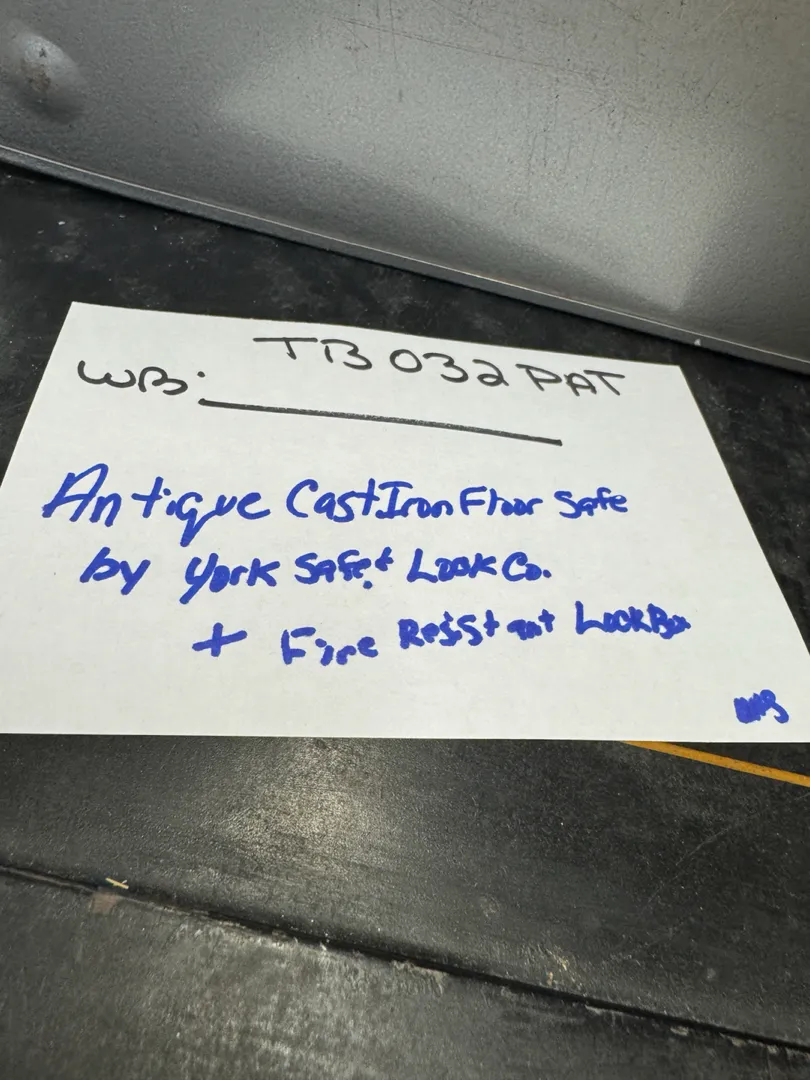 TB 032 PAT
WB:
Antique Cast Iron Floor Safe
by York Safe & Lock Co.
+ Fire Resistant LockBox